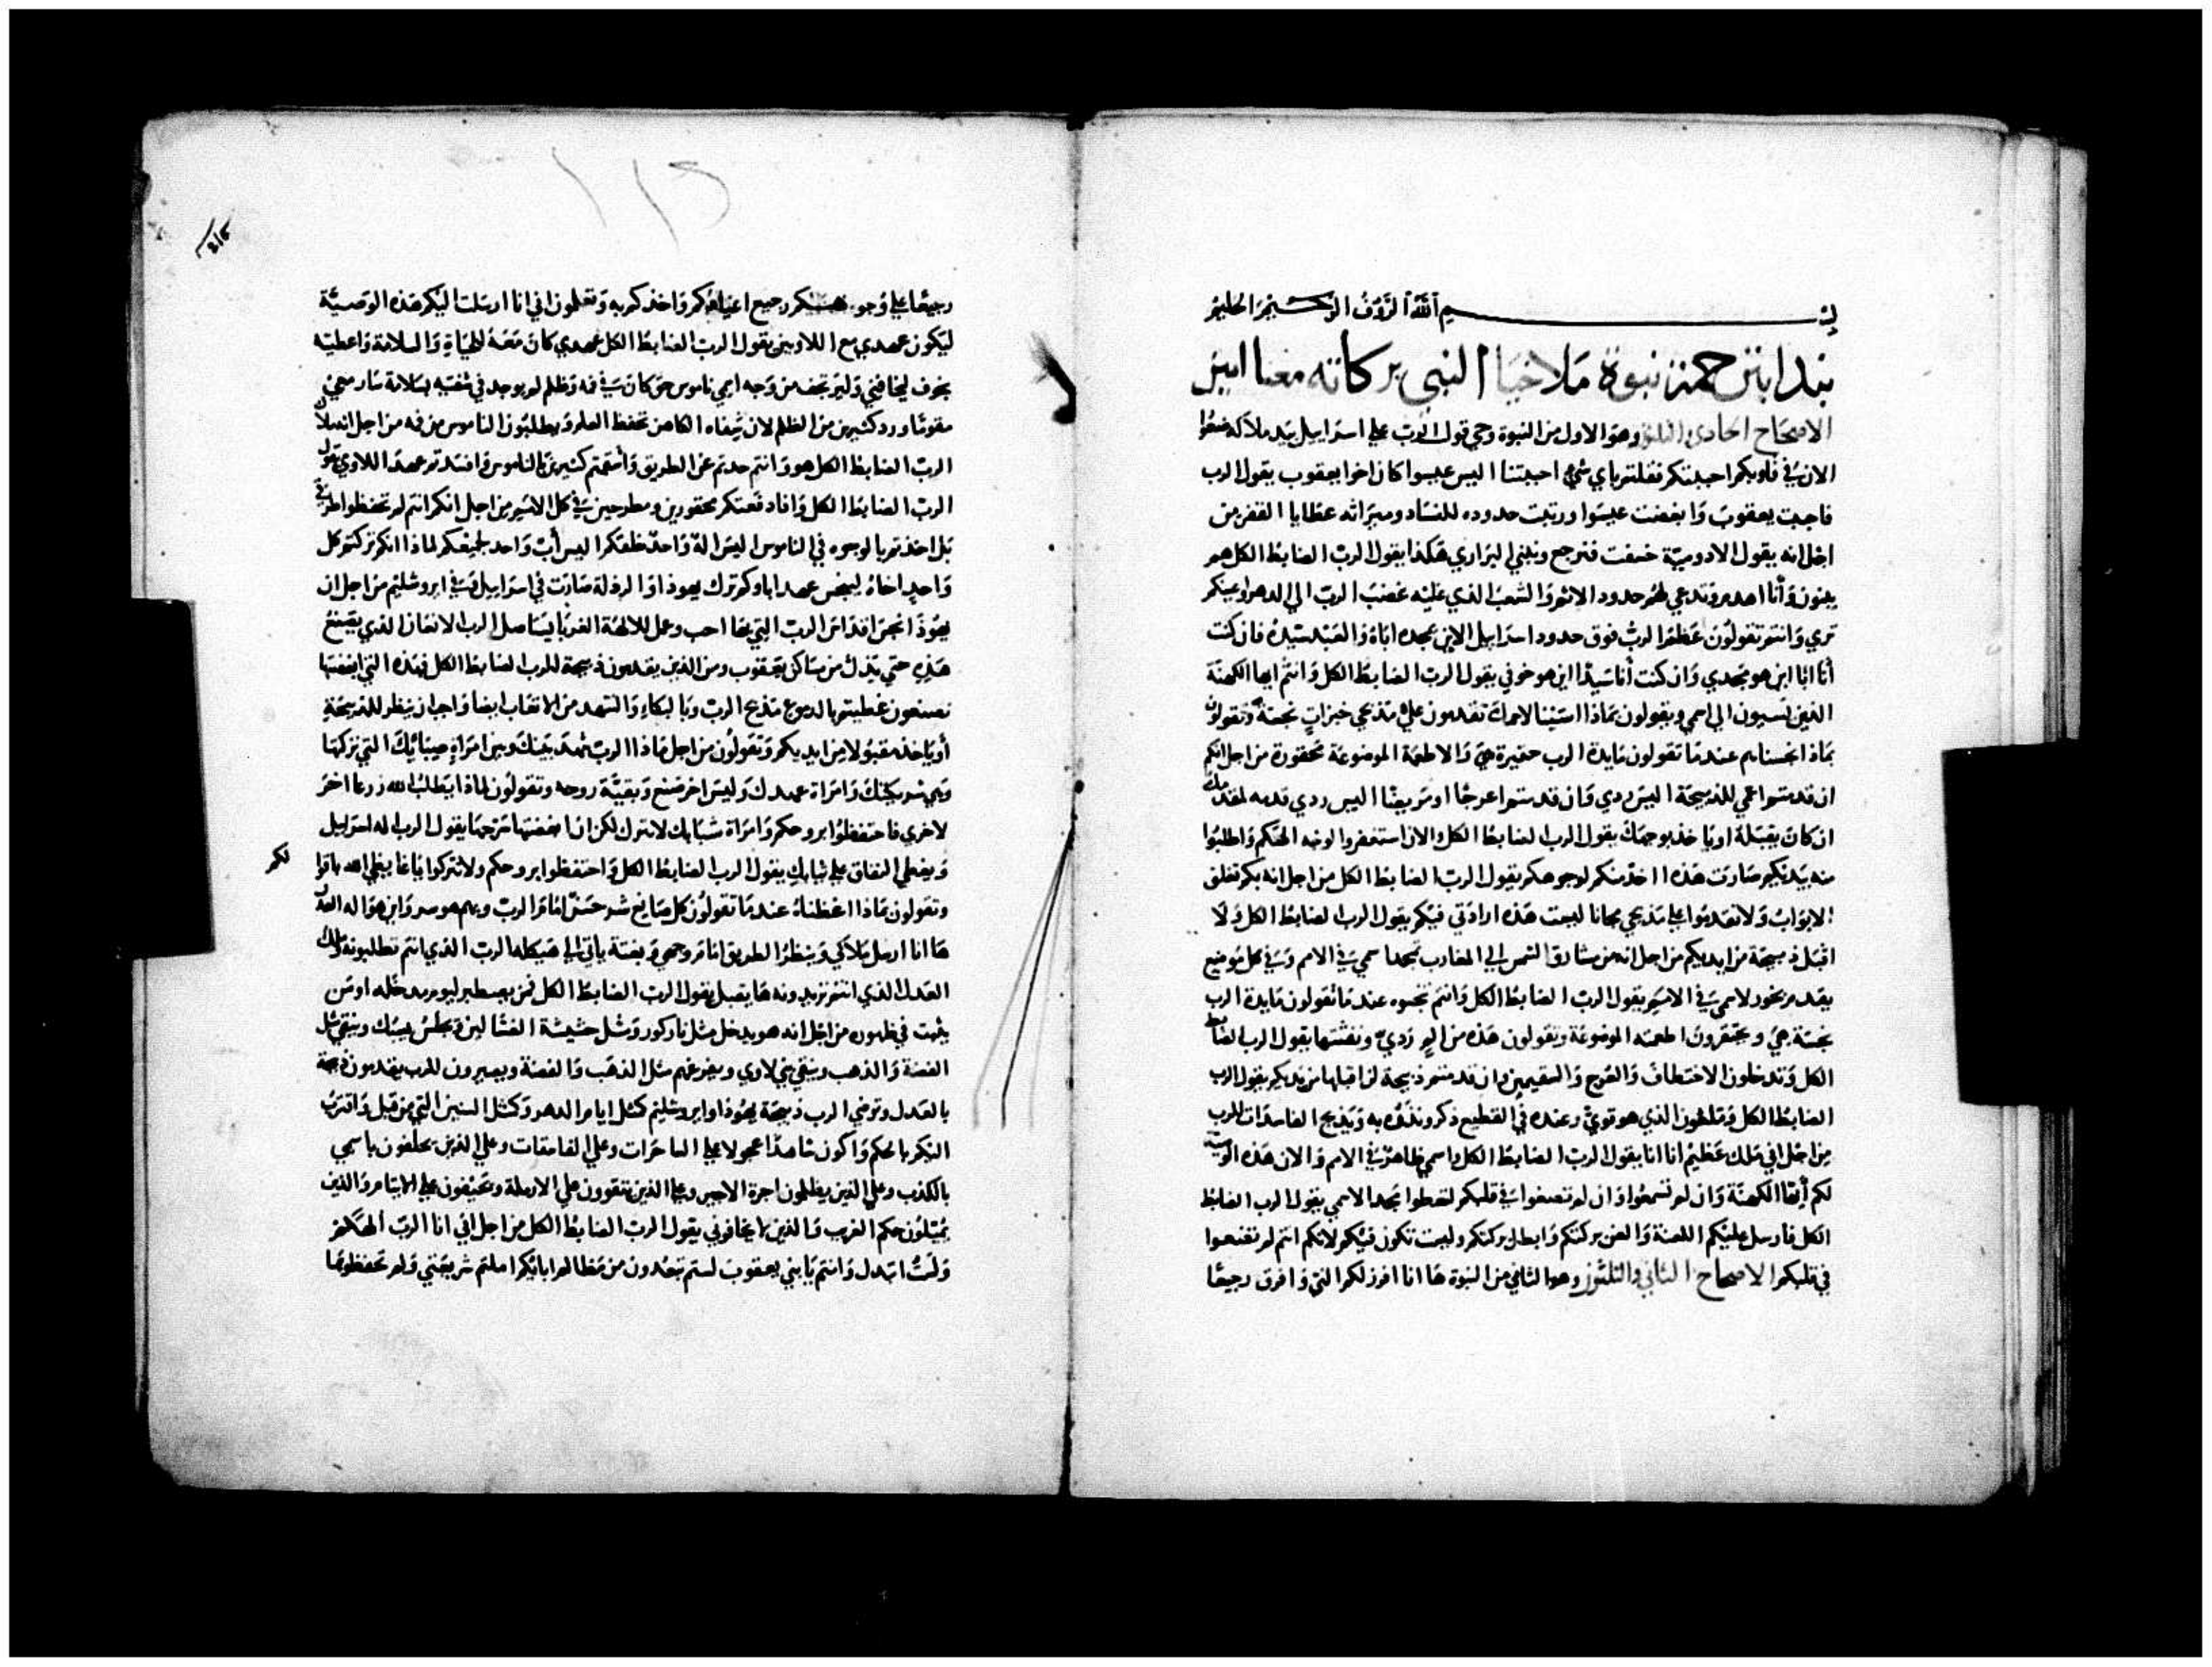 بسم الله الرؤف الرحيم الحليم
نبدا بترحمة نبوة ملاخيا النبي بركاته معنا امين
الاصحاح الحادي والثلثون وهو الاول من النبوة وحي قول الرب علي اسراييل بيد ملاكه ضعوا
الان في قلوبكم احببتكم فقلتم باي شي احببتنا اليس عيسوا كان اخوا يعقوب يقول الرب
فاحببت يعقوب وابغضت عيسوا ورتبت حدوده للفساد وميراثه عطايا القفر من
اجل انه يقول الادومية خسفت فنرجع ونبني البراري هكذا يقول الرب الضابط الكل هم
يبنون وأنا اهدم وتدعي لهم حدود الاثم والشعب الذي عليه غضب الرب الي الدهر واعينكم
تري وانتم تقولون عظم الرب فوق حدود اسراييل الابن يمجد اباه والعبد سيده فان كنت
أنا ابا اين هو مجدي وان كنت أنا سيدا اين هو خوفي يقول الرب الضابط الكل وانتم ايها الكهنة
الذين تسيون الي اسمي ويقولون بماذا اسينا لاسمك تقدمون علي مذبحي خبزات نجسة وتقولون
بماذا نجسناهم عندما تقولون مايدة الرب حقيرة هي والاطعمة الموضوعة محقورة من اجل انكم
ان قدمتم اعمي للذبيحة اليس ردي وان قدمتم اعرجا او مريضا اليس ردي قدمه لمقدمك
ان كان يقبله او ياخذ بوجهك يقول الرب الضابط الكل والان استغفروا لوجه الهكم واطلبوا
منه بيديكم صارت هذه ااخذ منكم لوجوهكم يقول الرب الضابط الكل من اجل انه بكم تغلق
الابواب ولا تقدموا علي مذبحي مجانا ليست هذه ارادتي فيكم يقول الرب الضابط الكل ولا
اقبل ذبيحة من ايديكم من اجل انه من مشارق الشمس الي المغارب تمجد اسمي في الامم وفي كل موضع
يقدم بخور لاسمي في الامم يقول الرب الضابط الكل وانتم نجسوه عندما تقولون مايدة الرب
نجسة هي ومحتقرون اطعمته الموضوعة وتقولون هذه من ردي ونفثتها يقول الرب الضابط
الكل وتدخلون الاختطاف والعرج والسقيمين وان قدمتم ذبيحة لن اقبلها من يديكم يقول الرب
الضابط الكل وملعون الذي هو قوي وعنده في القطيع ذكر ونذره به ويذبح الفاسدات للرب
من اجل اني ملك عظيم انا انا يقول الرب الضابط الكل واسمي ظاهر في الامم والان هذه الوصية
لكم أيها الكهنة وان لم تسمعوا وان لم تضعوا في قلبكم لتعطوا مجدا لاسمي يقول الرب الضابط
الكل فارسل عليكم اللعنة والعن بركتكم وابطل بركتكم وليست تكون فيكم لانكم انتم لم تضعوا
في قلبكم الاصحاح الثاني والثلثون وهو الثاني من النبوة ها انا افرز لكم اليد وافرق رجيعا
رجيعا علي وجوهكم رجيع اعيادكم واخذكم به وتعلمون اني انا ارسلت اليكم هذه الوصية
ليكون عهدي مع اللاويين يقول الرب الضابط الكل عهدي كان معه للحياة والسلامة واعطيته
بخوف ليخافني وليرتجف من وجه اسمي ناموس حق كان في فمه وظلم لم يوجد في شفتيه بسلامة سار معي
مقوما ورد كثيرين من الظلم لان شفاه الكاهن تحفظ العلم ويطلبون الناموس من فمه من اجل انه ملاك
الرب الضابط الكل هو وانتم حدتم عن الطريق وأسقمتم كثيرين بالناموس وافسدتم عهد اللاوي يقول
الرب الضابط الكل وانا دفعتكم محقورين ومطرحين في كل الامم من اجل انكم انتم لم تحفظوا طرقي
بل اخذتم بالوجوه في الناموس اليس اله واحد خلقكم اليس أب واحد لجميعكم لماذا انكم تركتم كل
واحد اخاه ليبخس عهد اباوكم ترك يهوذا والرذلة صارت في اسراييل وفي ايروشليم من اجل ان
يهوذا نجس اقداس الرب التي بها احب وعمل للالهة الغربا يستاصل الرب الانسان الذي يصنع
هذه حتي يذل من مساكن يعقوب ومن الذين يقدمون ذبيحة للرب الضابط الكل فهذه التي ابغضتها
تصنعون غطيتم بالدموع مذبح الرب وبالبكاء والتنهد من الاتعاب ايضا واجب ان ينظر للذبيحة
أو ياخذ مقبولا من ايديكم وتقولون من اجل ماذا الرب شهد بينك وبين امراة صبائك التي تركتها
وهي شريكتك وامراة عهدك وليس اخر صنع وبقية روحه وتقولون لماذا يطلب الله زرعا اخر
لاخري فاحتفظوا بروحكم وامراة شبابك لا تترك لكن اذا ابغضتها سرحها يقول الرب اله اسراييل
ويغطي النفاق علي ثيابك يقول الرب الضابط الكل واحتفظوا بروحكم ولا تتركوا
لكم
وتقولون بماذا اغظناه عندما تقولون كل صانع شر حسن امام الرب وبهم هو سر واين هو اله العدل
ها انا ارسل ملاكي وينظر الطريق امام وجهي وبغتة ياتي الي هيكله الرب الذي انتم تطلبونه وملاك
العهد الذي انتم تريدونه ها يقبل يقول الرب الضابط الكل فمن يصطبر ليوم مدخله او من
يثبت في ظهوره من اجل انه هو يدخل مثل نار كور ومثل حشيشة الغسالين ويجلس يسبك وينقي مثل
الفضة والذهب وينقي بني لاوي ويفرغهم مثل الذهب والفضة ويصيرون للرب يقدمون ذبيحة
بالعدل وترضي الرب ذبيحة يهوذا وايروشليم كمثل ايام الدهر وكمثل السنين التي من قبل واقترب
اليكم بالحكم واكون شاهدا عجولا علي الساحرات وعلي الفاسقات وعلي الذين يحلفون باسمي
بالكذب وعلي الذين يظلمون اجرة الاجير وعلي الذين يتقوون علي الارملة ويحيفون علي الايتام والذين
يميلون حكم الغريب والذين لا يخافوني يقول الرب الضابط الكل من اجل اني انا الرب الهكم
ولست اتبدل وانتم يا بني يعقوب لستم تبعدون من مظالم ابائكم املتم شريعتي ولم تحفظوها